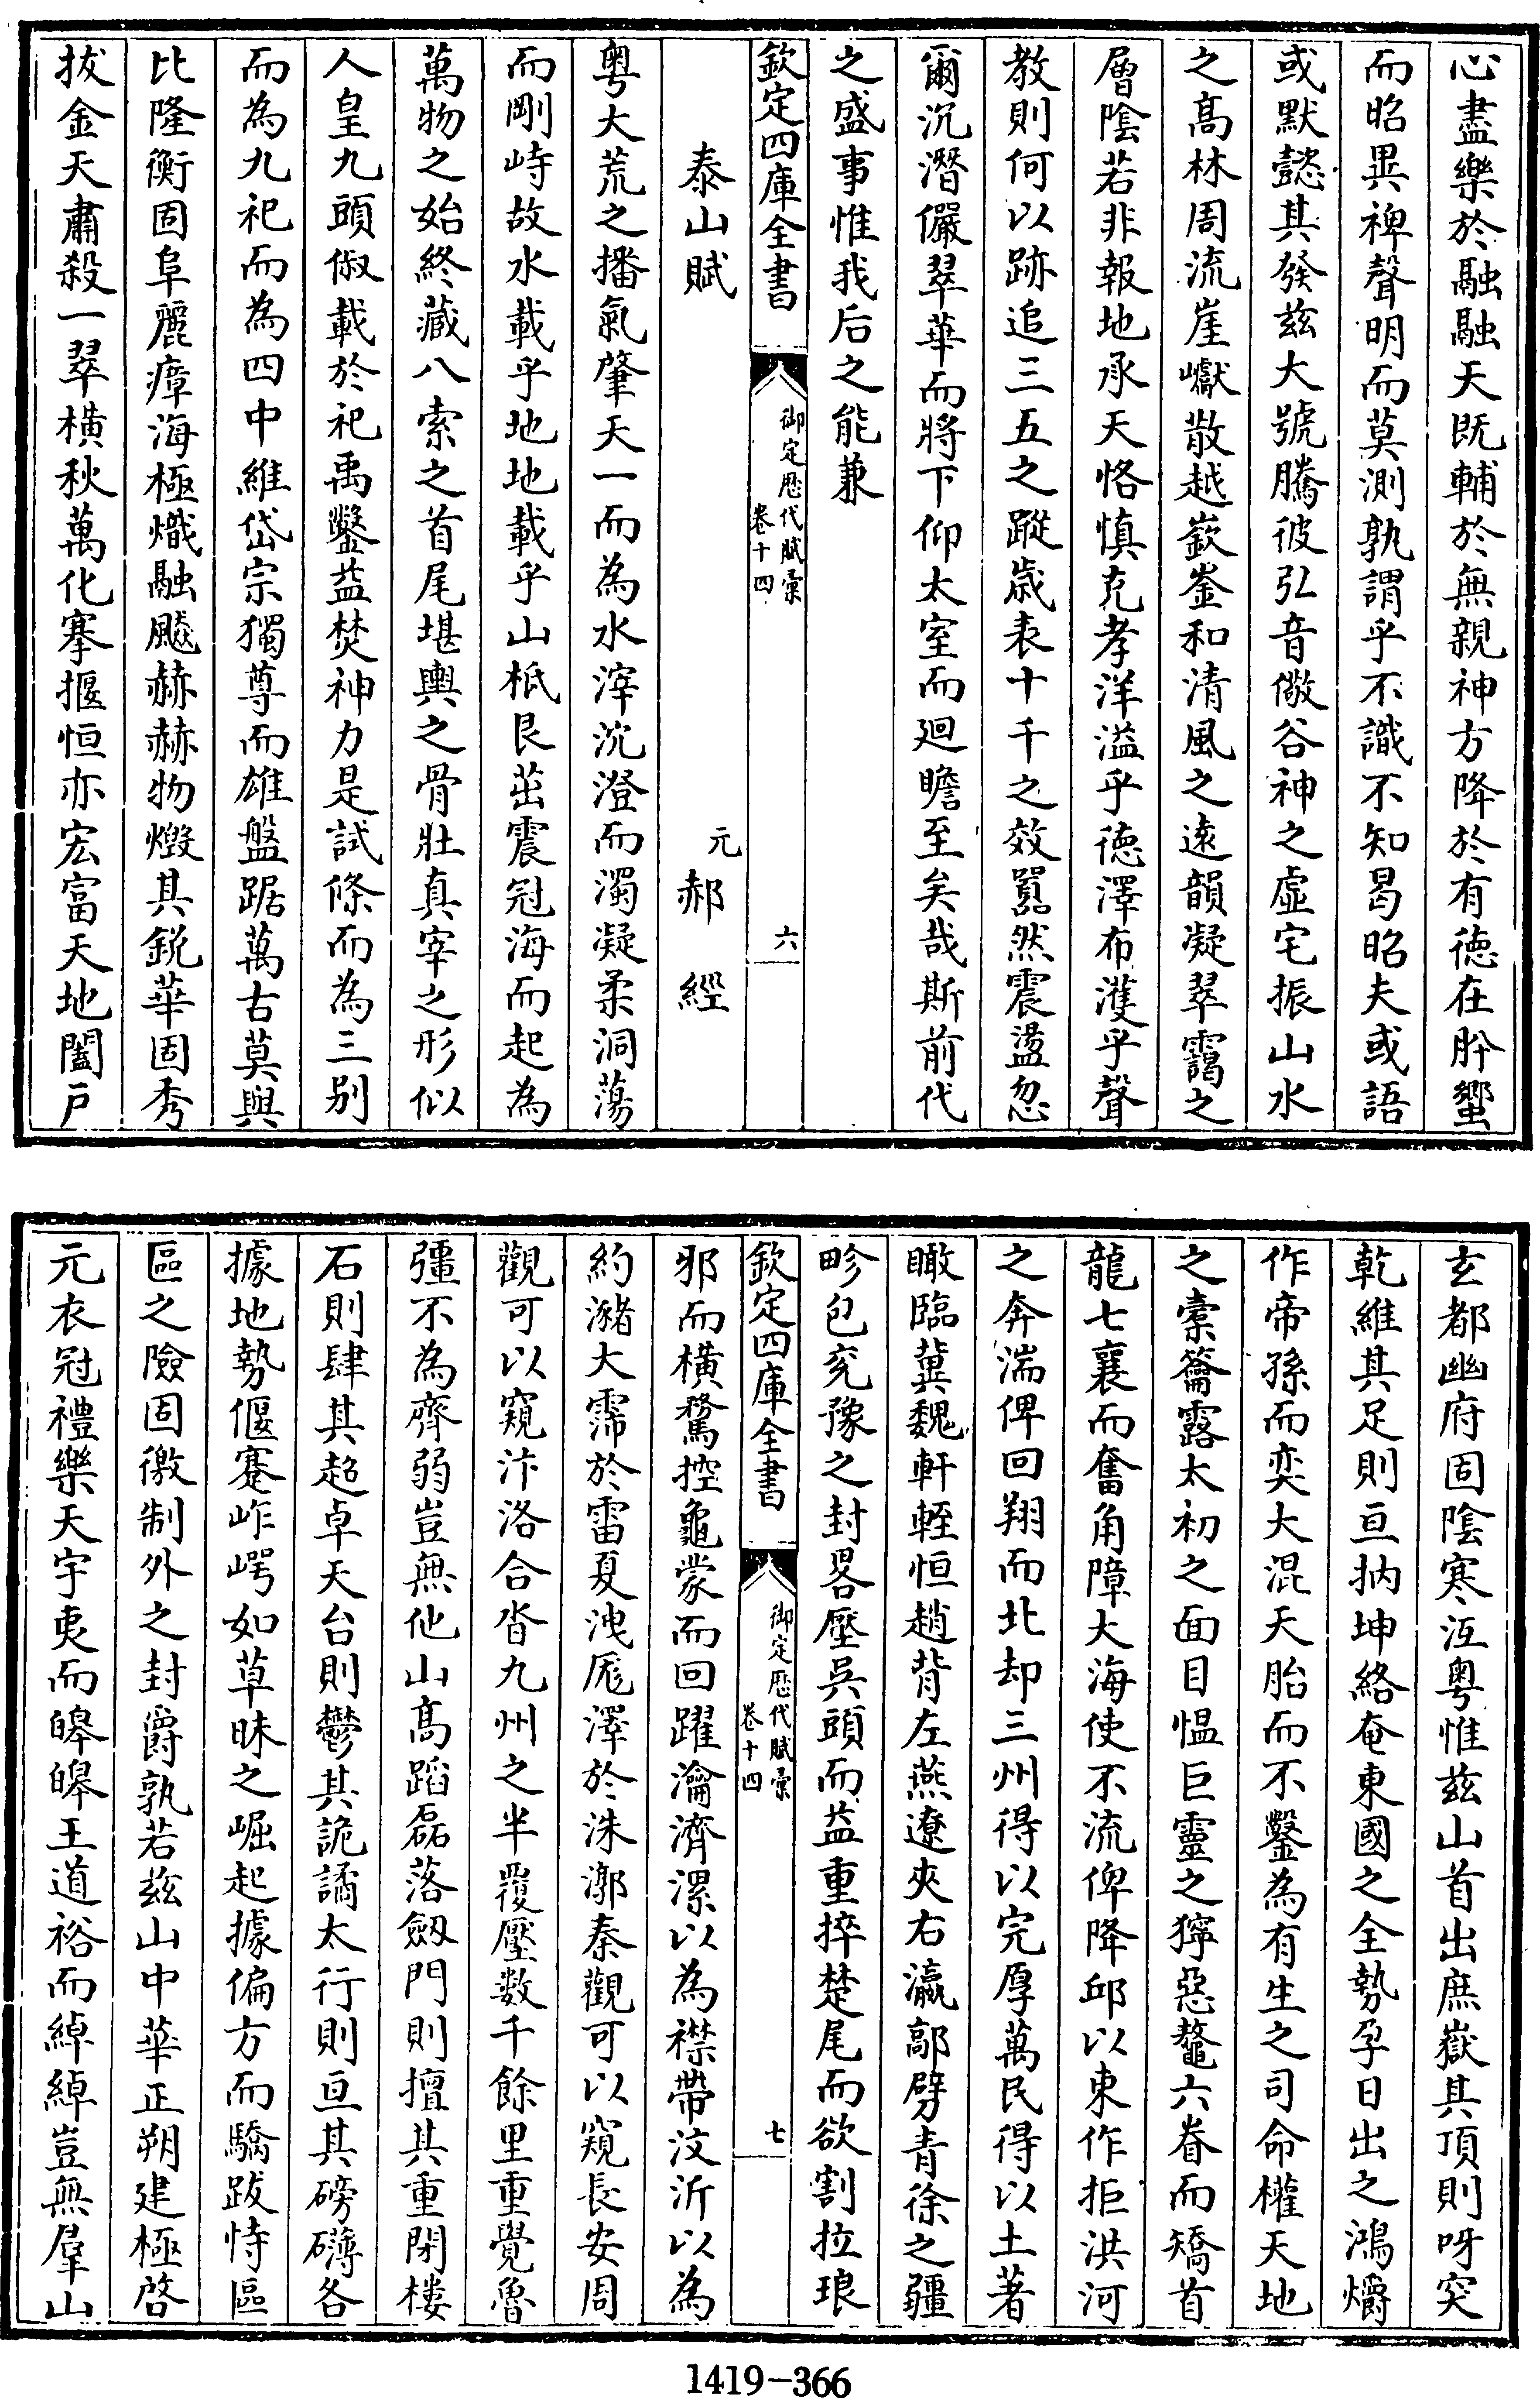 心盡樂於融融天既輔於無親神方降於有德在肸蠁
而昭異裨聲明而莫測孰謂乎不識不知曷昭夫或語
或默懿其發茲大號騰彼弘音儆谷神之虛宅振山水
之高林周流崖巘散越嶔崟和清風之遠韻凝翠靄之
層陰若非報地承天恪慎克孝洋溢乎德澤布濩乎聲
教則何以跡追三五之蹤歲表十千之效嚚然震盪忽
爾沉潛儼翠華而將下仰太室而迴瞻至矣哉斯前代
之盛事惟我后之能兼
欽定四庫全書
御定歷代賦彙
卷十四
六
泰山賦
元
郝經
粵大荒之播氣肇天一而為水滓沈澄而濁凝柔洞蕩
而剛峙故水載乎地地載乎山柢艮茁震冠海而起為
萬物之始終藏八索之首尾堪輿之骨壯真宰之形似
人皇九頭俶載於祀禹鑿益焚神力是試條而為三別
而為九祀而為四中維岱宗獨尊而雄盤踞萬古莫與
比隆衡固阜麗瘴海極熾融飈赫赫物燬其銳華固秀
拔金天肅殺一翠橫秋萬化搴揠恒亦宏富天地闔戸
玄都幽府固陰寒沍粵惟茲山首出庶嶽其頂則呀突
乾維其足則亘抐坤絡奄東國之全勢孕日出之鴻爝
作帝孫而奕大混天胎而不鑿為有生之司命權天地
之橐籥露太初之面目愠巨靈之獰惡鼇六眷而矯首
龍七襄而奮角障大海使不流俾降邱以東作拒洪河
之奔湍俾回翔而北却三州得以完厚萬民得以土著
瞰臨冀魏軒輊恒趙背左燕遼夾右瀛鄚劈青徐之疆
畛包兖豫之封畧壓吳頭而益重捽楚尾而欲割拉琅
欽定四庫全書
御定歷代賦彙
卷十四
七
邪而橫騖控龜蒙而回躍瀹濟漯以為襟帶汶沂以為
約瀦大霈於雷夏洩厖澤於洙漷秦觀可以窺長安周
觀可以窺汴洛合沓九州之半覆壓数千餘里重覺魯
彊不為齊弱豈無他山高蹈磊落劒門則擅其重閉樓
石則肆其超卓天台則鬱其詭譎太行則亘其磅礴各
據地勢偃蹇岞崿如草昧之崛起據偏方而驕跋恃區
區之險固徼制外之封爵孰若茲山中華正朔建極啓
元衣冠禮樂天宇夷而皞皞王道裕而綽綽豈無羣山
1419-366